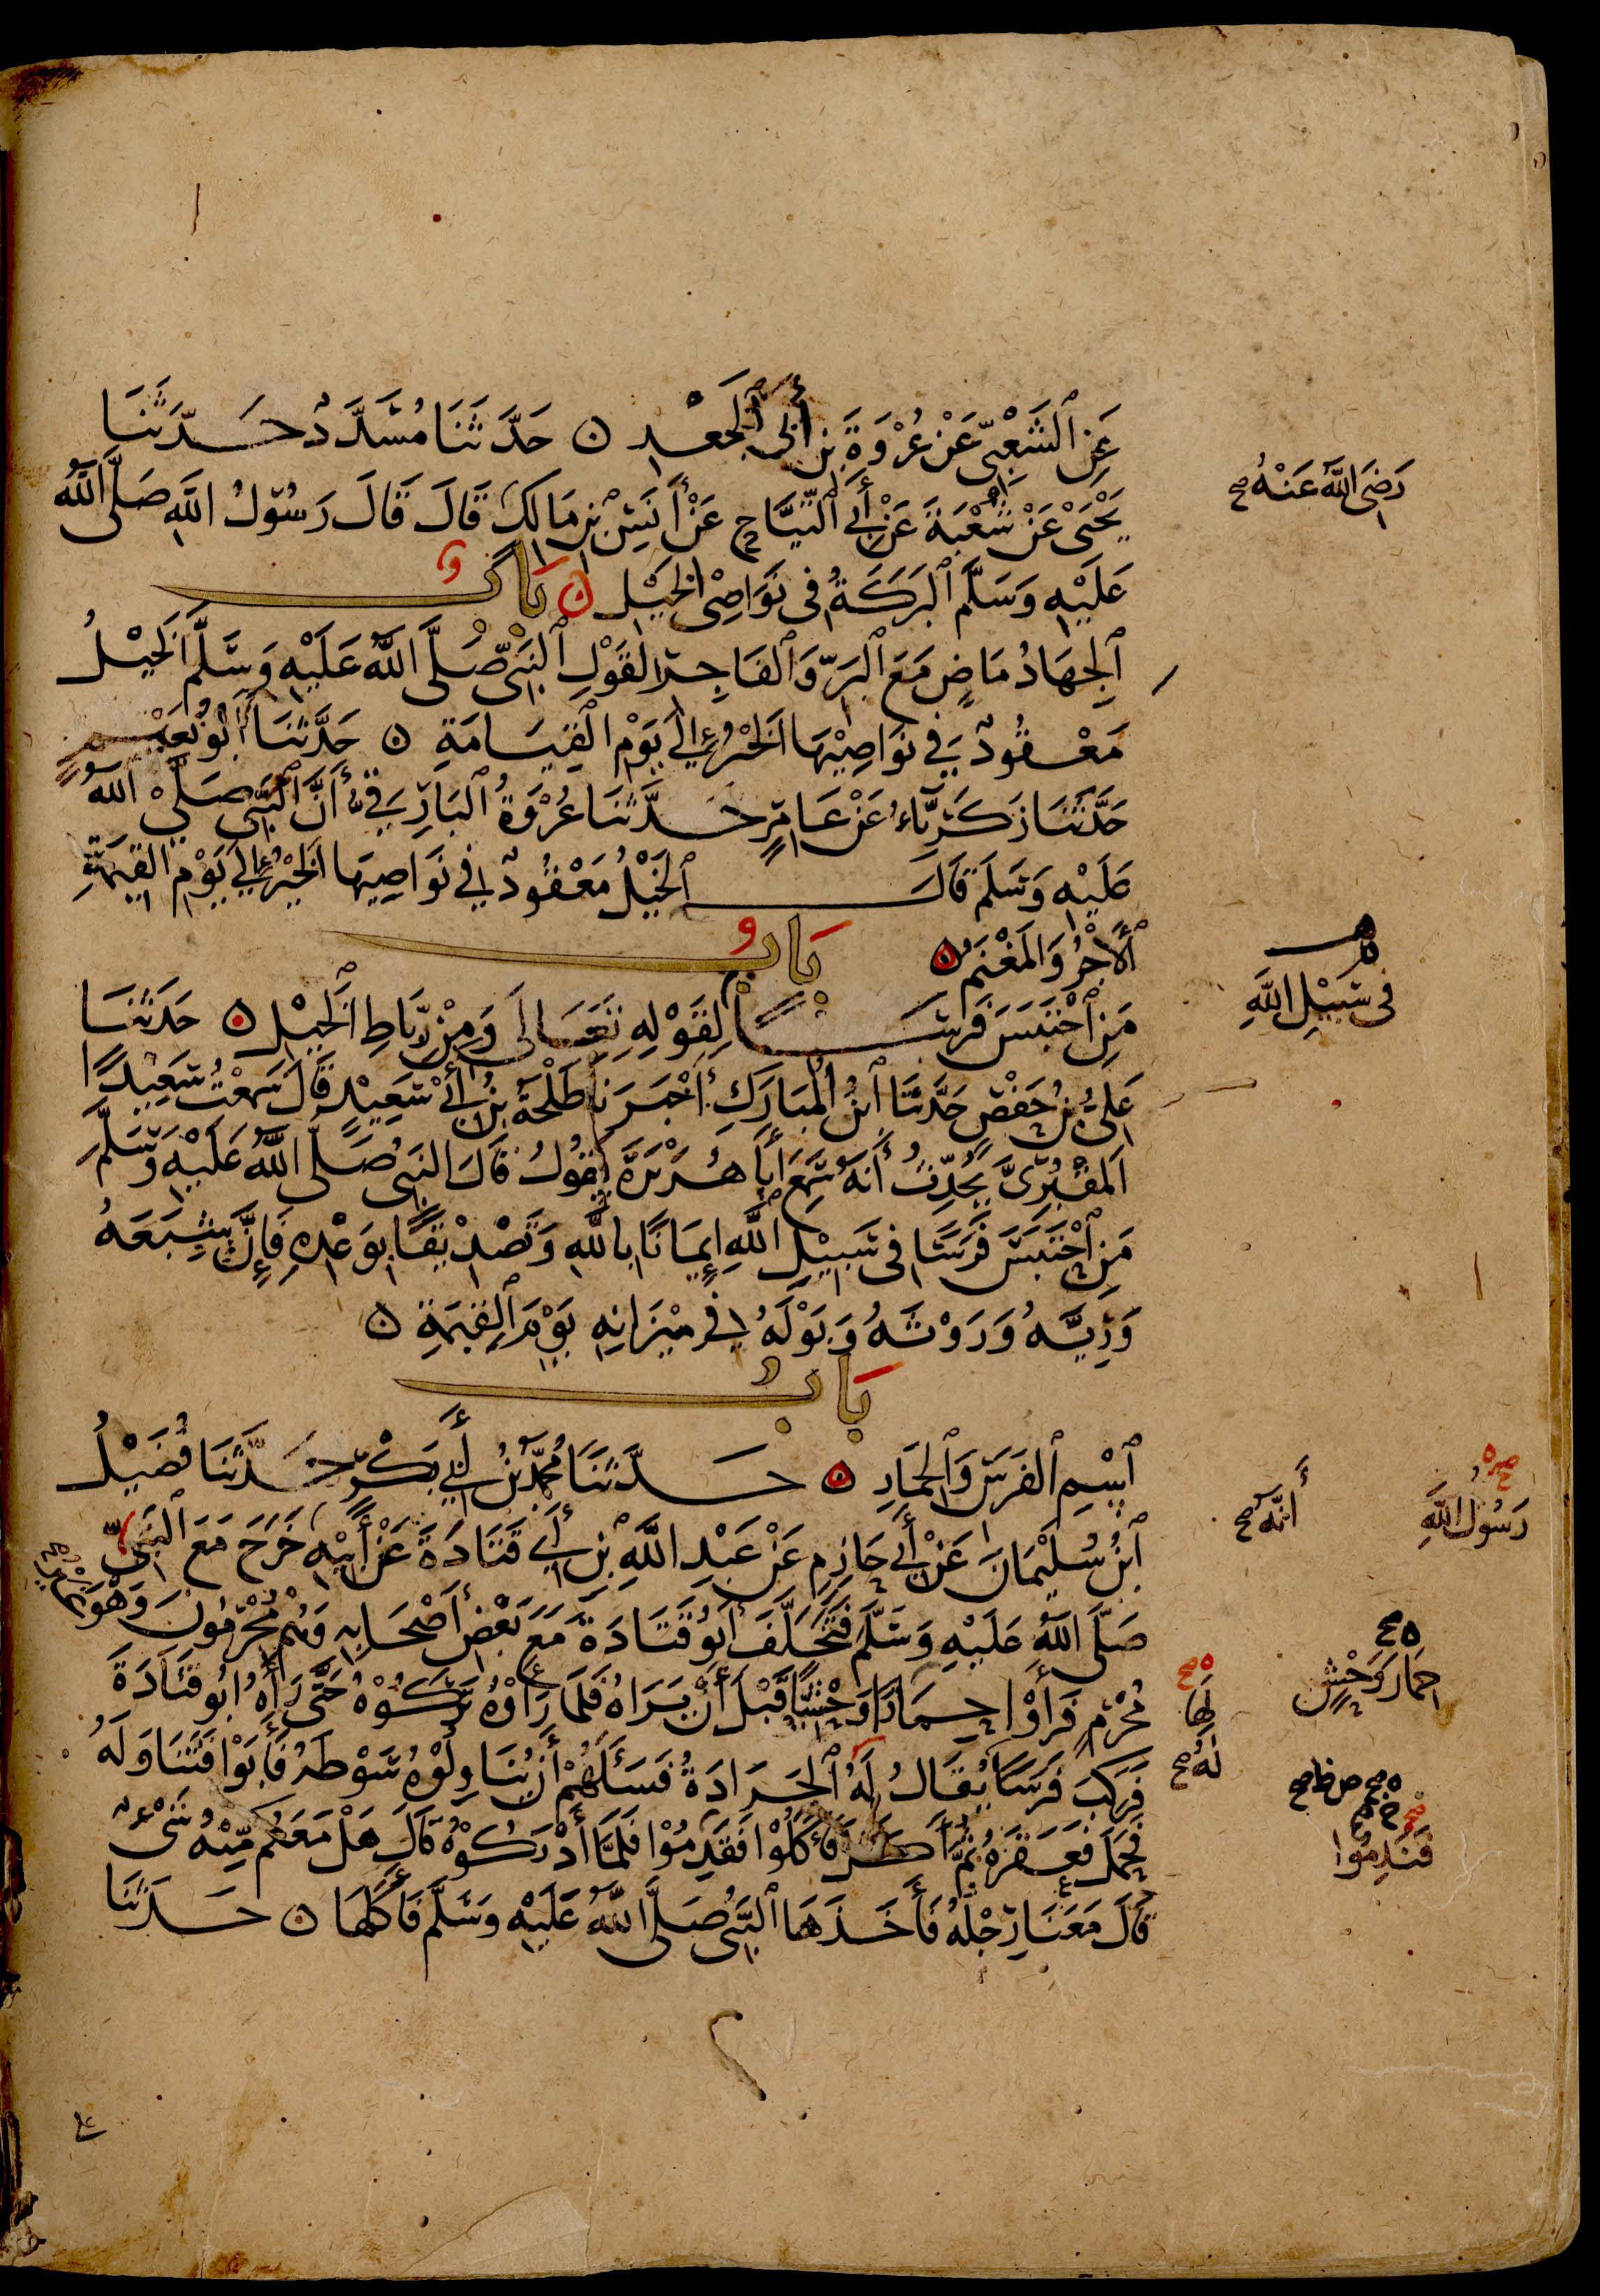 عَنِ ٱلشَّعْبِيِّ عَنْ عُرْوَةَ بْنِ أَبِي ٱلْجَعْدِ ۝ حَدَّثَنَا مُسَدَّدٌ حَدَّثَنَا
يَحْيَىٰ عَنْ شُعْبَةَ عَنْ أَبِي ٱلتَّيَّاحِ عَنْ أَنَسِ بْنِ مَالِكٍ قَالَ قَالَ رَسُولُ اللَّهِ صَلَّى اللَّهُ
رَضِيَ اللَّهُ عَنْهُ صح
عَلَيْهِ وَسَلَّمَ ٱلْبَرَكَةُ فِي نَوَاصِي الْخَيْلِ ۝ بَابٌ
ٱلْجِهَادُ مَاضٍ مَعَ ٱلْبَرِّ وَٱلْفَاجِرِ لِقَوْلِ ٱلنَّبِيِّ صَلَّى اللَّهُ عَلَيْهِ وَسَلَّمَ الْخَيْلُ
مَعْقُودٌ فِي نَوَاصِيْهَا الْخَيْرُ إِلَى يَوْمِ الْقِيَامَةِ ۝ حَدَّثَنَا أَبُو نُعَيْمٍ
حَدَّثَنَا زَكَرِيَّاءُ عَنْ عَامِرٍ حَدَّثَنَا عُرْوَةُ ٱلْبَارِقِيُّ أَنَّ ٱلنَّبِيَّ صَلَّى اللَّهُ
عَلَيْهِ وَسَلَّمَ قَالَ ٱلْخَيْلُ مَعْقُودٌ فِي نَوَاصِيهَا الْخَيْرُ إِلَى يَوْمِ الْقِيمَةِ
ٱلْأَجْرُ وَالْمَغْنَمُ ۝ بَابُ
مَنِ ٱحْتَبَسَ فَرَسًا لِقَوْلِهِ تَعَالَى وَمِنْ رِبَاطِ ٱلْخَيْلِ ۝ حَدَّثَنَا
فِي سَبِيْلِ اللَّهِ
عَلِيُّ بْنُ حَفْصٍ حَدَّثَنَا ٱبْنُ الْمُبَارَكِ أَخْبَرَنَا طَلْحَةُ بْنُ أَبِي سَعِيْدٍ قَالَ سَمِعْتُ سَعِيْدًا
ٱلْمَقْبُرِيَّ يُحَدِّثُ أَنَّهُ سَمِعَ أَبَا هُرَيْرَةَ يَقُولُ قَالَ النَّبِيُّ صَلَّى اللَّهُ عَلَيْهِ وَسَلَّمَ
مَنِ ٱحْتَبَسَ فَرَسًا فِي سَبِيْلِ اللَّهِ إِيمَانًا بِاللَّهِ وَتَصْدِيْقًا بِوَعْدِهِ فَإِنَّ شِبَعَهُ
وَرِيَّهُ وَرَوْثَهُ وَبَوْلَهُ فِي مِيْزَانِهِ يَوْمَ ٱلْقِيمَةِ ۝
بَابُ
ٱسْمِ ٱلْفَرَسِ وَٱلْحِمَارِ ۝ حَدَّثَنَا مُحَمَّدُ بْنُ أَبِي بَكْرٍ حَدَّثَنَا فُضَيْلُ
أَنَّهُ صح
رَسُولِ اللَّهِ
ٱبْنُ سُلَيْمَانَ عَنْ أَبِي حَازِمٍ عَنْ عَبْدِ اللَّهِ بْنِ أَبِي قَتَادَةَ عَنْ أَبِيْهِ خَرَجَ مَعَ النَّبِيِّ
صَلَّى اللَّهُ عَلَيْهِ وَسَلَّمَ فَتَخَلَّفَ أَبُو قَتَادَةَ مَعَ بَعْضِ أَصْحَابِهِ وَهُمْ مُحْرِمُونَ وَهُوَ غَيْرُ
مُحْرِمٍ فَرَأَوْا حِمَارًا وَحْشِيًّا قَبْلَ أَنْ يَرَاهُ فَلَمَّا رَأَوْهُ تَرَكُوْهُ حَتَّى رَآهُ أَبُو قَتَادَةَ
حِمَارَ وَحْشٍ
لَهَا
فَرَكِبَ فَرَسًا يُقَالُ لَهُ ٱلْجَرَادَةُ فَسَأَلَهُمْ أَنْ يُنَاوِلُوْهُ سَوْطَهُ فَأَبَوْا فَتَنَاوَلَهُ
لَهُ صح
فَحَمَلَ فَعَقَرَهُ ثُمَّ أَكَلَ فَأَكَلُوْا فَقَدِمُوْا فَلَمَّا أَدْرَكُوْهُ قَالَ هَلْ مَعَكُمْ مِنْهُ شَيْءٌ
فَنَدِمُوْا
قَالَ مَعَنَا رِجْلُهُ فَأَخَذَهَا ٱلنَّبِيُّ صَلَّى اللَّهُ عَلَيْهِ وَسَلَّمَ فَأَكَلَهَا ۝ حَدَّثَنَا